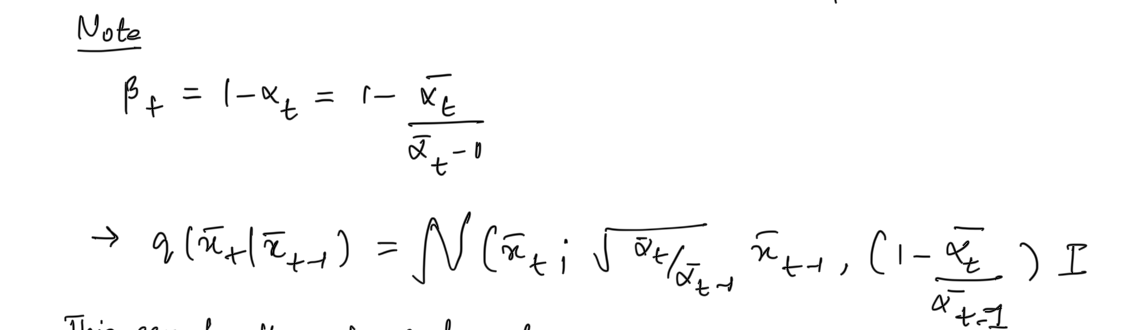 Note
β_t = 1-α_t = 1- ᾱ_t / ᾱ_t-0
→ q(x̄_t|x̄_t-1) = N(x̄_t ; √ᾱ_t/ᾱ_t-1 x̄_t-1, (1- ᾱ_t / ᾱ_t-1) I